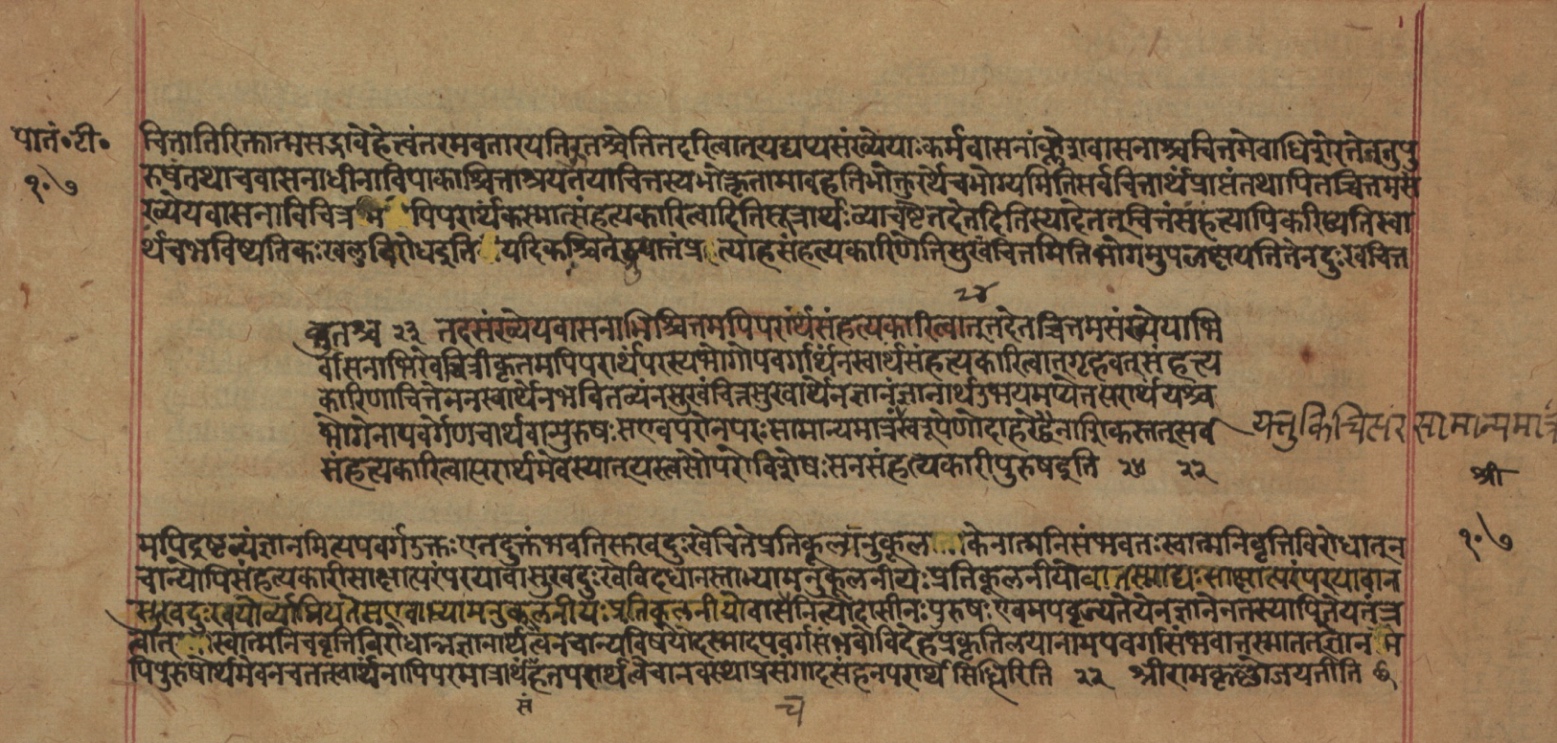 पातं॰टी॰
१०७
चित्तातिरिक्तात्मसद्भावेहेत्वंतरमवतारयतिकुतश्चेतितदरित्वात्यद्यप्यसंख्येयाःकर्मवासनाःक्लेशवासनाश्चचित्तमेवाधिशेरतेनतुपु
रुषंतथाचवासनाधीनाविपाकाश्चित्ताश्रयतयाचित्तस्यभोक्तृतामावहंतिभोक्तुरर्थेचभोग्यमितिसर्वंचित्तार्थंप्राप्तंतथापितच्चित्तमसं
ख्येयवासनाविचित्रम पिपरार्थंकस्मात्संहत्यकारित्वादितिसूत्रार्थःव्याचष्टेतदेतदितिस्यादेतत्चित्तंसंहत्यापिकरिष्यतिस्वा
र्थंचभविष्यतिकःखलुविरोधइति यदिकश्चित्ब्रूयात्तंप्रत्याहसंहत्यकारिणेतिसुखचित्तमितिभोगमुपलक्षयतितेनदुःखचित्त
२४
कुतश्च २३ तदसंख्येयवासनाभिश्चित्तमपिपरार्थंसंहत्यकारित्वात्तदेतच्चित्तमसंख्येयाभि
र्वासनाभिरेवचित्रीकृतमपिपरार्थंपरस्यभोगापवर्गार्थंनस्वार्थंसंहत्यकारित्वात्गृहवत्संहत्य
कारिणाचित्तेननस्वार्थेनभवितव्यंनसुखंचित्तंसुखार्थंनज्ञानंज्ञानार्थंउभयमप्येतत्परार्थंयश्च
भोगेनापवर्गेणचार्थवान्पुरुषःसएवपरोनपरःसामान्यमात्रं स्वरूपेणोदाहरेद्वैनाशिकस्तत्सर्वं
संहत्यकारित्वात्परार्थमेवस्यात्यस्त्वसौपरोविशेषःसनसंहत्यकारीपुरुषइति २४ २२
यत्तुकिंचित्परंसामान्यमात्रं
श्री
१०७
मपिद्रष्टव्यंज्ञानमित्यपवर्गउक्तःएतदुक्तंभवतिसुखदुःखेचित्तेप्रतिकूल्यानुकूल केनात्मनिसंभवतःस्वात्मनिवृत्तिविरोधात्न
चान्योपिसंहत्यकारीसाक्षात्परंपरयावासुखदुःखेविदधानस्ताभ्यामनुकूलनीयःप्रतिकूलनीयोवातस्माद्यःसाक्षात्परंपरयावान
सुखदुःखयोर्व्याप्रियतेसएवाभ्यामनुकूलनीयःप्रतिकूलनीयोवासचनित्योदासीनःपुरुषःएवमपवृज्यतेयेनज्ञानेनतस्यापिज्ञेयतंत्र
त्वात् स्वात्मनिचवृत्तिविरोधान्नज्ञानार्थत्वंनचान्यविषयादस्मादपवर्गसंभवोविदेहप्रकृतिलयानामपवर्गासंभवात्तस्मात्तज्ज्ञानम
पिपुरुषार्थमेवनचतत्स्वार्थंनापिपरमात्रार्थंहतपरार्थत्वेचानवस्थाप्रसंगादसंहतपरार्थसिद्धिरिति २२ श्रीरामकृष्णोजयतीति
सं
च